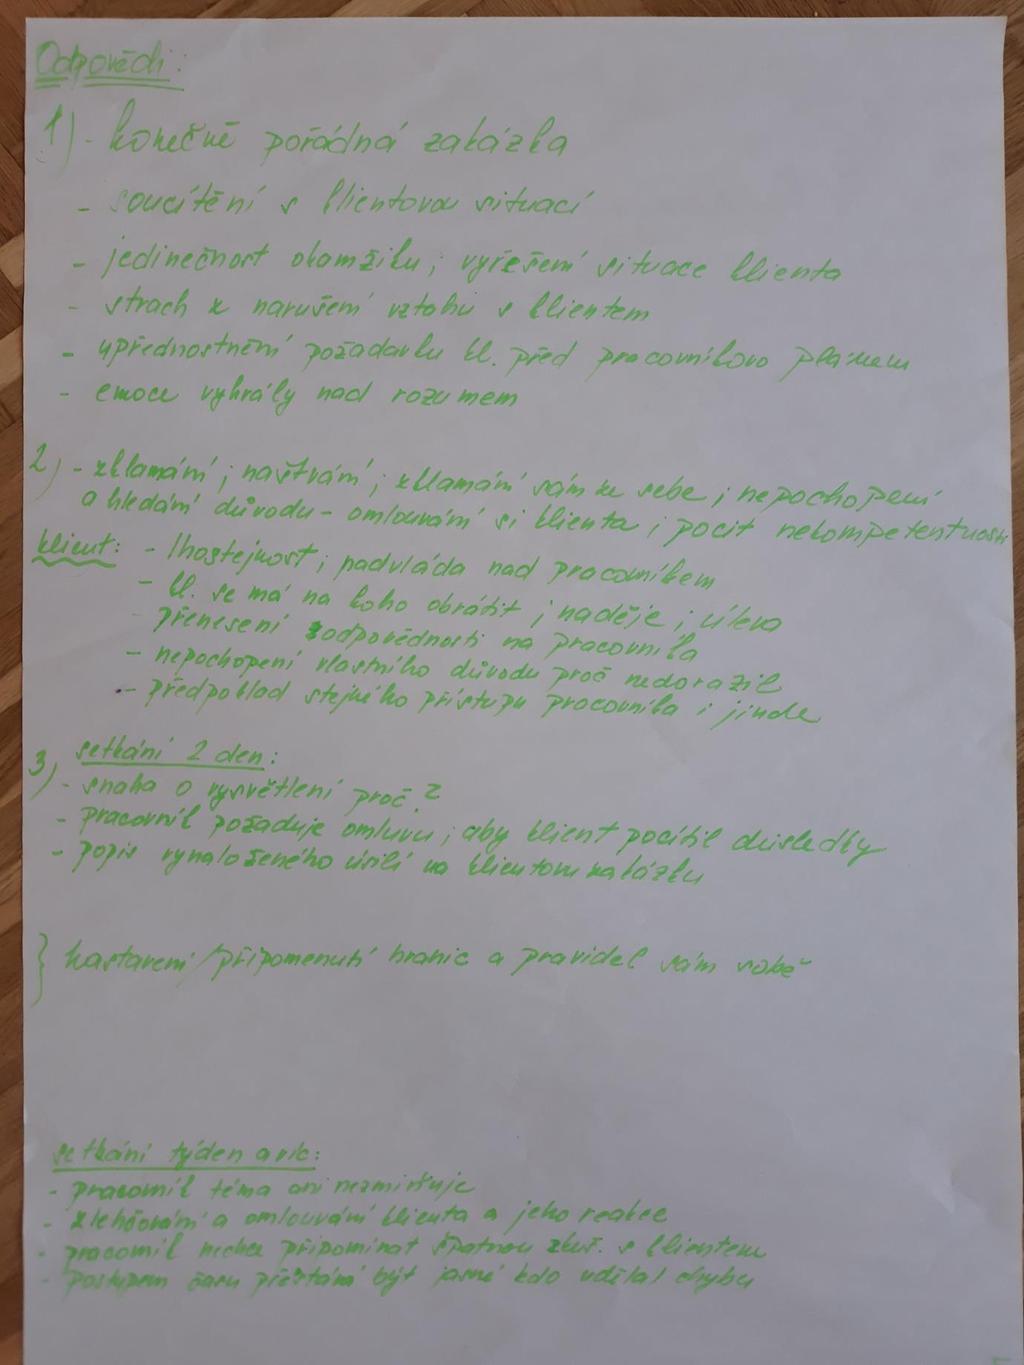 Odpovědi:
1) - konečně pořádná zakázka
- soucítění s klientovou situací
- jedinečnost okamžiku; vyřešení situace klienta
- strach z narušení vztahu s klientem
- upřednostnění požadavku kl. před pracovníkovo plánem
- emoce vyhrály nad rozumem
2) - zklamání; naštvání; zklamání sám ze sebe; nepochopení
a hledání důvodu - omlouvání si klienta; pocit nekompetentnosti
klient: - lhostejnost; nadvláda nad pracovníkem
- kl. se má na koho obrátit; naděje; úleva
- přenesení zodpovědnosti na pracovníka
- nepochopení vlastního důvodu proč nedorazil
- předpoklad stejného přístupu pracovníka i jinde
3) setkání 2 den:
- snaha o vysvětlení proč?
- pracovník požaduje omluvu; aby klient pocítil důsledky
- popis vynaloženého úsilí na klientovu zakázku
} nastavení/připomenutí hranic a pravidel sám sobě
setkání týden a víc:
- pracovník téma ani nezmiňuje
- zlehčování a omlouvání klienta a jeho reakce
- pracovník nechce připomínat špatnou zkuš. s klientem
- postupem času přestává být jasné kdo udělal chybu